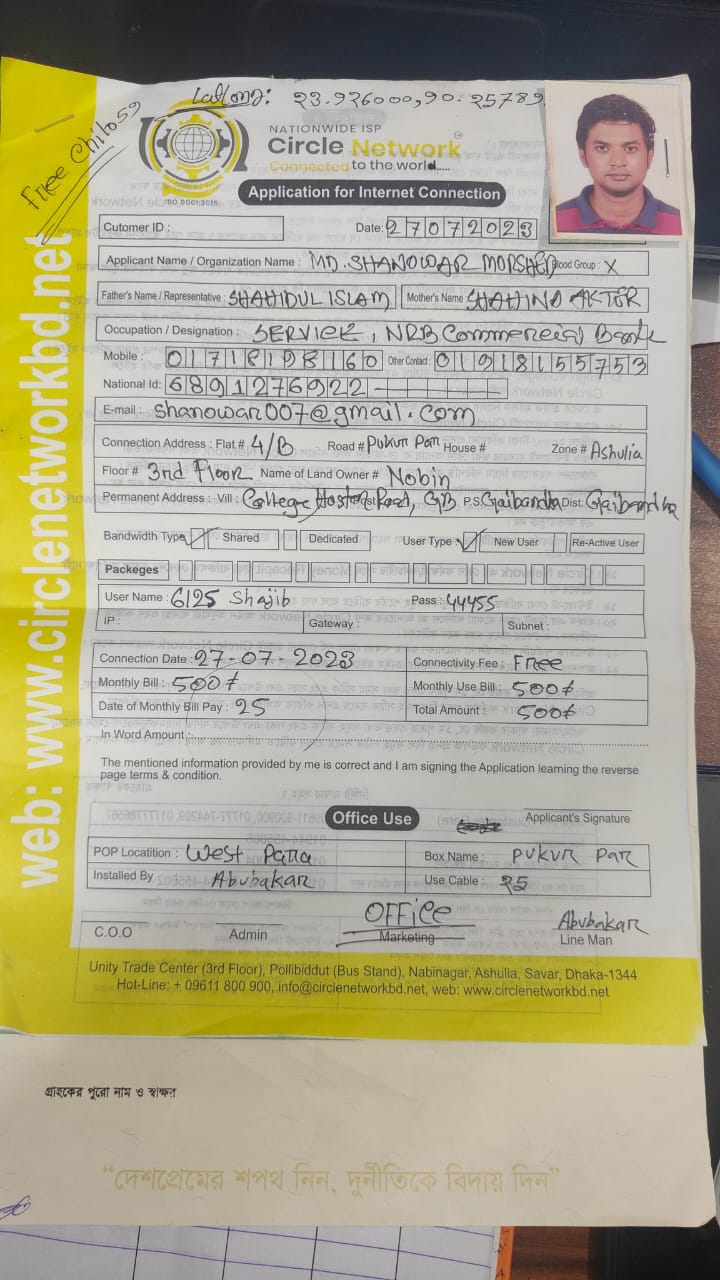 LatLong: ২৩.৯২6000,90.২5789
Free Chilo 59
NATIONWIDE ISP
Circle Network
Connected to the world.....
ISO 9001:2015
Application for Internet Connection
Cutomer ID :
Date: 27072023
Applicant Name / Organization Name : MD. SHANOWAR MORSHED Blood Group : X
Father's Name / Representative : SHAHIDUL ISLAM Mother's Name SHAHINA AKTER
Occupation / Designation : SERVICE, NRB Commercial Bank
Mobile : 01718198160 Other Contact : 01918155753
National Id: 6891276922
E-mail : shanowar007@gmail.com
Connection Address : Flat # 4/B Road # PUKUR PAR House # Zone # Ashulia
Floor # 3rd Floor Name of Land Owner # Nobin
Permanent Address : Vill : College Hostel Road, GB P.S Gaibandha Dist: Gaibandha
Bandwidth Type Shared Dedicated User Type : New User Re-Active User
Packeges
User Name : 6125 Shajib Pass : 44455
IP : Gateway : Subnet :
Connection Date : 27-07-2023 Connectivity Fee : Free
Monthly Bill : 500৳ Monthly Use Bill : 500৳
Date of Monthly Bill Pay : 25 Total Amount : 500৳
In Word Amount :
The mentioned information provided by me is correct and I am signing the Application learning the reverse
page terms & condition.
Office Use
Applicant's Signature
POP Locatition : West Para Box Name : PUKUR PAR
Installed By : Abubakar Use Cable : ২5
OFFICE
Abubakar
C.O.O Admin Marketing Line Man
Unity Trade Center (3rd Floor), Pollibiddut (Bus Stand), Nabinagar, Ashulia, Savar, Dhaka-1344
Hot-Line: + 09611 800 900, info@circlenetworkbd.net, web: www.circlenetworkbd.net
web: www.circlenetworkbd.net
গ্রাহকের পুরো নাম ও স্বাক্ষর
“দেশপ্রেমের শপথ নিন, দুর্নীতিকে বিদায় দিন”